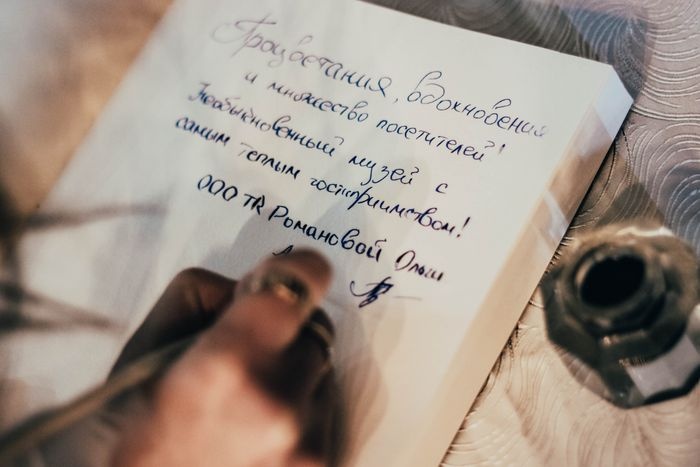 Процветания, вдохновения
и множество посетителей!
Необыкновенный музей с
самым теплым гостеприимством!
ООО TR Романовой Ольги